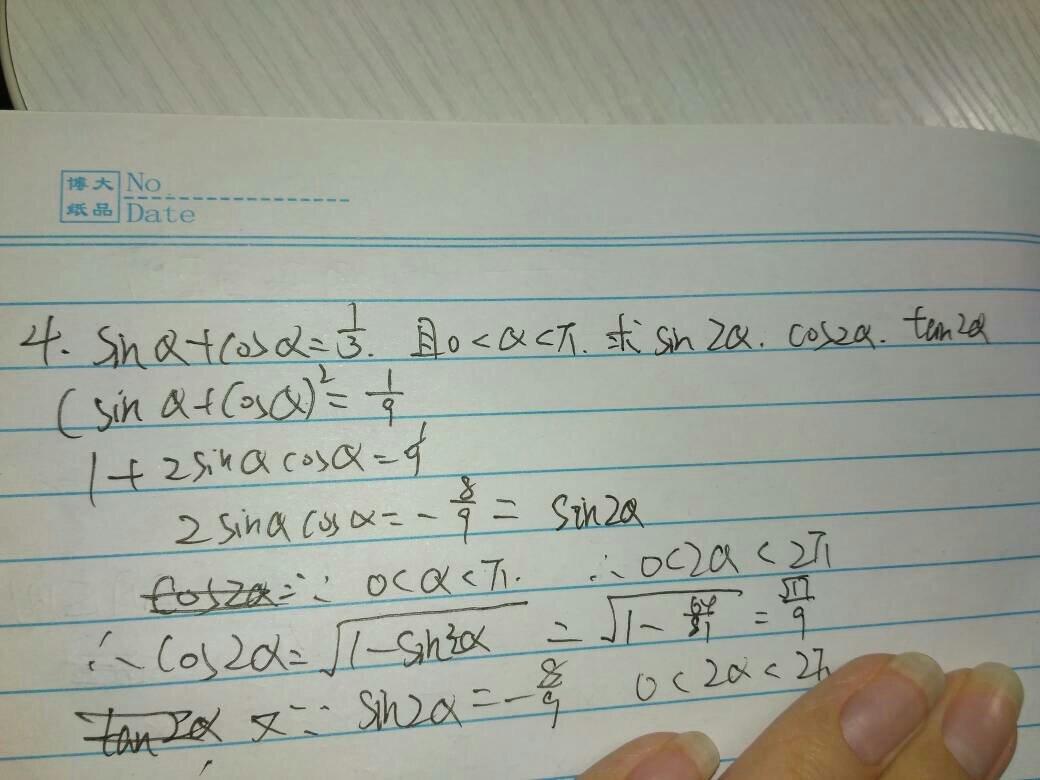 博大 No
纸品 Date
4. sin α+cos α=1/3. 且0<α<π. 求 sin 2α. cos2α. tan2α
(sin α+cosα)²=1/9
1+2sinαcosα=1/9
2sinαcosα=-8/9= sin2α
cos2α=∵ 0<α<π. ∴0<2α<2π
∴cos2α=√(1-sin²2α) =√(1-64/81) =√17/9
tan2α 又∵ sin2α=-8/9 0<2α<2π